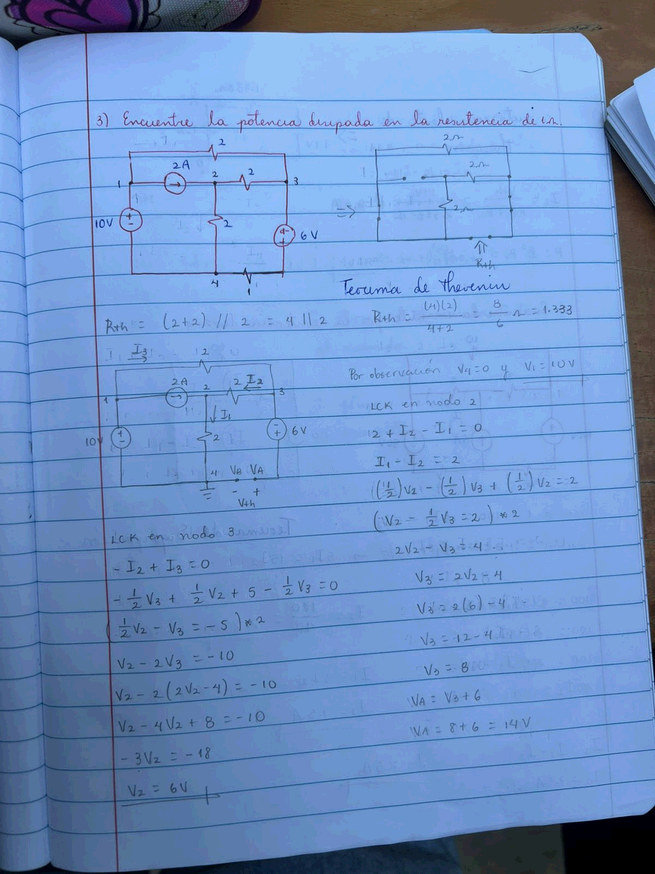 3) Encuentre la potencia disipada en la resistencia de 1Ω.
2
2A
1
2
2
3
10V
+
-
2
-
+
6V
4
1
⇒
2Ω
2Ω
2Ω
Rth
Teorema de thevenin
Rth = (2+2) // 2 = 4 || 2
Rth = (4)(2) / 4+2 = 8 / 6 Ω = 1.333
I3
2
1
2A
2
2
I2
3
I1
10
+
-
2
-
+
6V
4
VB
VA
-
+
Vth
Por observación V4=0 y V1=10V
LCK en nodo 2
2 + I2 - I1 = 0
I1 - I2 = 2
(1/2)V2 - (1/2)V3 + (1/2)V2 = 2
(V2 - 1/2 V3 = 2) * 2
2V2 - V3 = 4
V3 = 2V2 - 4
V3 = 2(6) - 4
V3 = 12 - 4
V3 = 8
VA = V3 + 6
VA = 8 + 6 = 14V
LCK en nodo 3
- I2 + I3 = 0
- 1/2 V3 + 1/2 V2 + 5 - 1/2 V3 = 0
(1/2 V2 - V3 = -5) * 2
V2 - 2V3 = -10
V2 - 2(2V2 - 4) = -10
V2 - 4V2 + 8 = -10
- 3V2 = -18
V2 = 6V